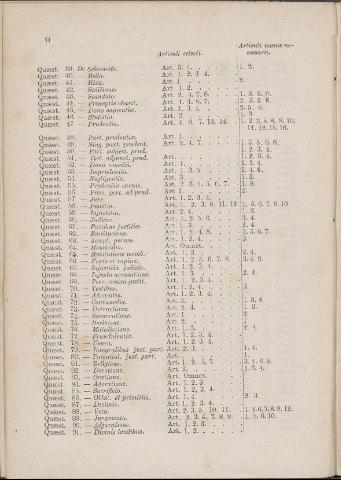 VI
Articuli selecti. Articuli minus necessarii.
Quæst. 39. De Schismate. Art. 3. 4. 1. 2.
Quæst. 40. — Bello. Art. 1. 2. 3. 4.
Quæst. 41. — Rixa. Art. 1 2.
Quæst. 42. — Seditione. Art. 1. 2.
Quæst. 43. — Scandalo. Art. 2. 4. 7. 8. 1. 3. 5. 6.
Quæst. 44. — Præceptis charit. Art. 1. 4. 6. 7. 2. 3. 5. 8.
Quæst. 45. — Dono sapientiæ. Art. 1. 3. 4. 2. 5. 6.
Quæst. 46. — Stultitia. Art. 2. 1. 3
Quæst. 47. — Prudentia. Art. 4. 6. 7. 13. 14. 1. 2. 3. 5. 8. 9. 10.
11. 12. 15. 16.
Quæst. 48. Part. prudentiæ. Art. 1.
Quæst. 49. Sing. part. prudent. Art. 2. 4. 7. 1. 3. 5. 6. 8.
Quæst. 50. Part. subject. prud. 1. 2. 3. 4.
Quæst. 51. Virt. adjunct. prud. Art. 1. 2. 3. 4.
Quæst. 52. Dono consilii. Art. 1. 2. 3. 4.
Quæst. 53. Imprudentia. Art. 1. 3. 5. 2. 4. 6.
Quæst. 54. Negligentia. Art. 3. 1. 2.
Quæst. 55. Prudentia carnis. Art. 2. 3. 4. 5. 6. 7. 1. 8.
Quæst. 56. Præc. pert. ad prud. Art. 1 2.
Quæst. 57. — Jure Art. 1. 2. 3. 4.
Quæst. 58. — Justitia. Art. 1. 2. 3. 8. 11. 12 4. 5. 6. 7. 9. 10.
Quæst. 59. — Injustitia. Art. 2. 4. 1. 3.
Quæst. 60. — Judicio. Art. 1. 2. 5. 6. 3. 4.
Quæst. 61. — Partibus justitiæ. Art. 1. 3. 2. 4.
Quæst. 62. — Restitutione. Art. 1. 2. 4. 8. 3. 5. 6. 7.
Quæst. 63. — Accept. person. Art. 1. 2. 4. 3.
Quæst. 64. — Homicidio. Art. Omnes.
Quæst. 65. — Mutilatione memb. Art. 1. 3. 2. 4.
Quæst. 66. — Furto et rapina. Art. 1. 2. 5. 6. 7. 8. 3. 4. 9.
Quæst. 67. — Injustitia judicis. Art. 1. 2. 3. 4.
Quæst. 68. — Injusta accusatione. Art. 1. 3. 2. 4.
Quæst. 69. — Pecc. contra justit. Art. 1. 2. 3. 4.
Quæst. 70. — Testibus. Art. 1. 2. 4. 3.
Quæst. 71. — Advocatis. Art. 1. 2. 3. 4.
Quæst. 72. — Contumelia. Art. 2. 1. 3. 4.
Quæst. 73. — Detractione. Art. 2. 4. 1. 3.
Quæst. 74. — Susurratione. Art. 1. 2.
Quæst. 75. — Derisione. Art. 2. 1.
Quæst. 76. — Maledictione. Art. 1. 3. 2. 4.
Quæst. 77. — Fraudulentia. Art. 1. 2. 3. 4.
Quæst. 78. — Usura. Art. 1. 2. 3. 4.
Quæst. 79. — Integralibus just. part. Art. 2. 3. 1. 4.
Quæst. 80. — Potential. just. part. Art. 1.
Quæst. 81. — Religione. Art. 1. 2. 5. 7. 3. 4. 6. 8.
Quæst. 82. — Devotione. Art. 2. 1. 3. 4.
Quæst. 83. — Oratione. Art. Omnes.
Quæst. 84. — Adoratione. Art. 1. 2. 3
Quæst. 85. — Sacrificio. Art. 1. 2. 3. 4.
Quæst. 86. — Oblat. et primitiis. Art. 1. 4. 2. 3.
Quæst. 87. — Decimis. Art. 1. 2. 3. 4.
Quæst. 88. — Voto. Art. 2. 3. 5. 10. 11. 1. 4. 6. 7. 8. 9. 12.
Quæst. 89. — Juramento. Art. 2. 3. 4. 7. 8. 9. 1. 5. 6. 10.
Quæst. 90. — Adjuratione. Art. 1. 2. 3.
Quæst. 91. — Divinis laudibus. Art. 1. 2.